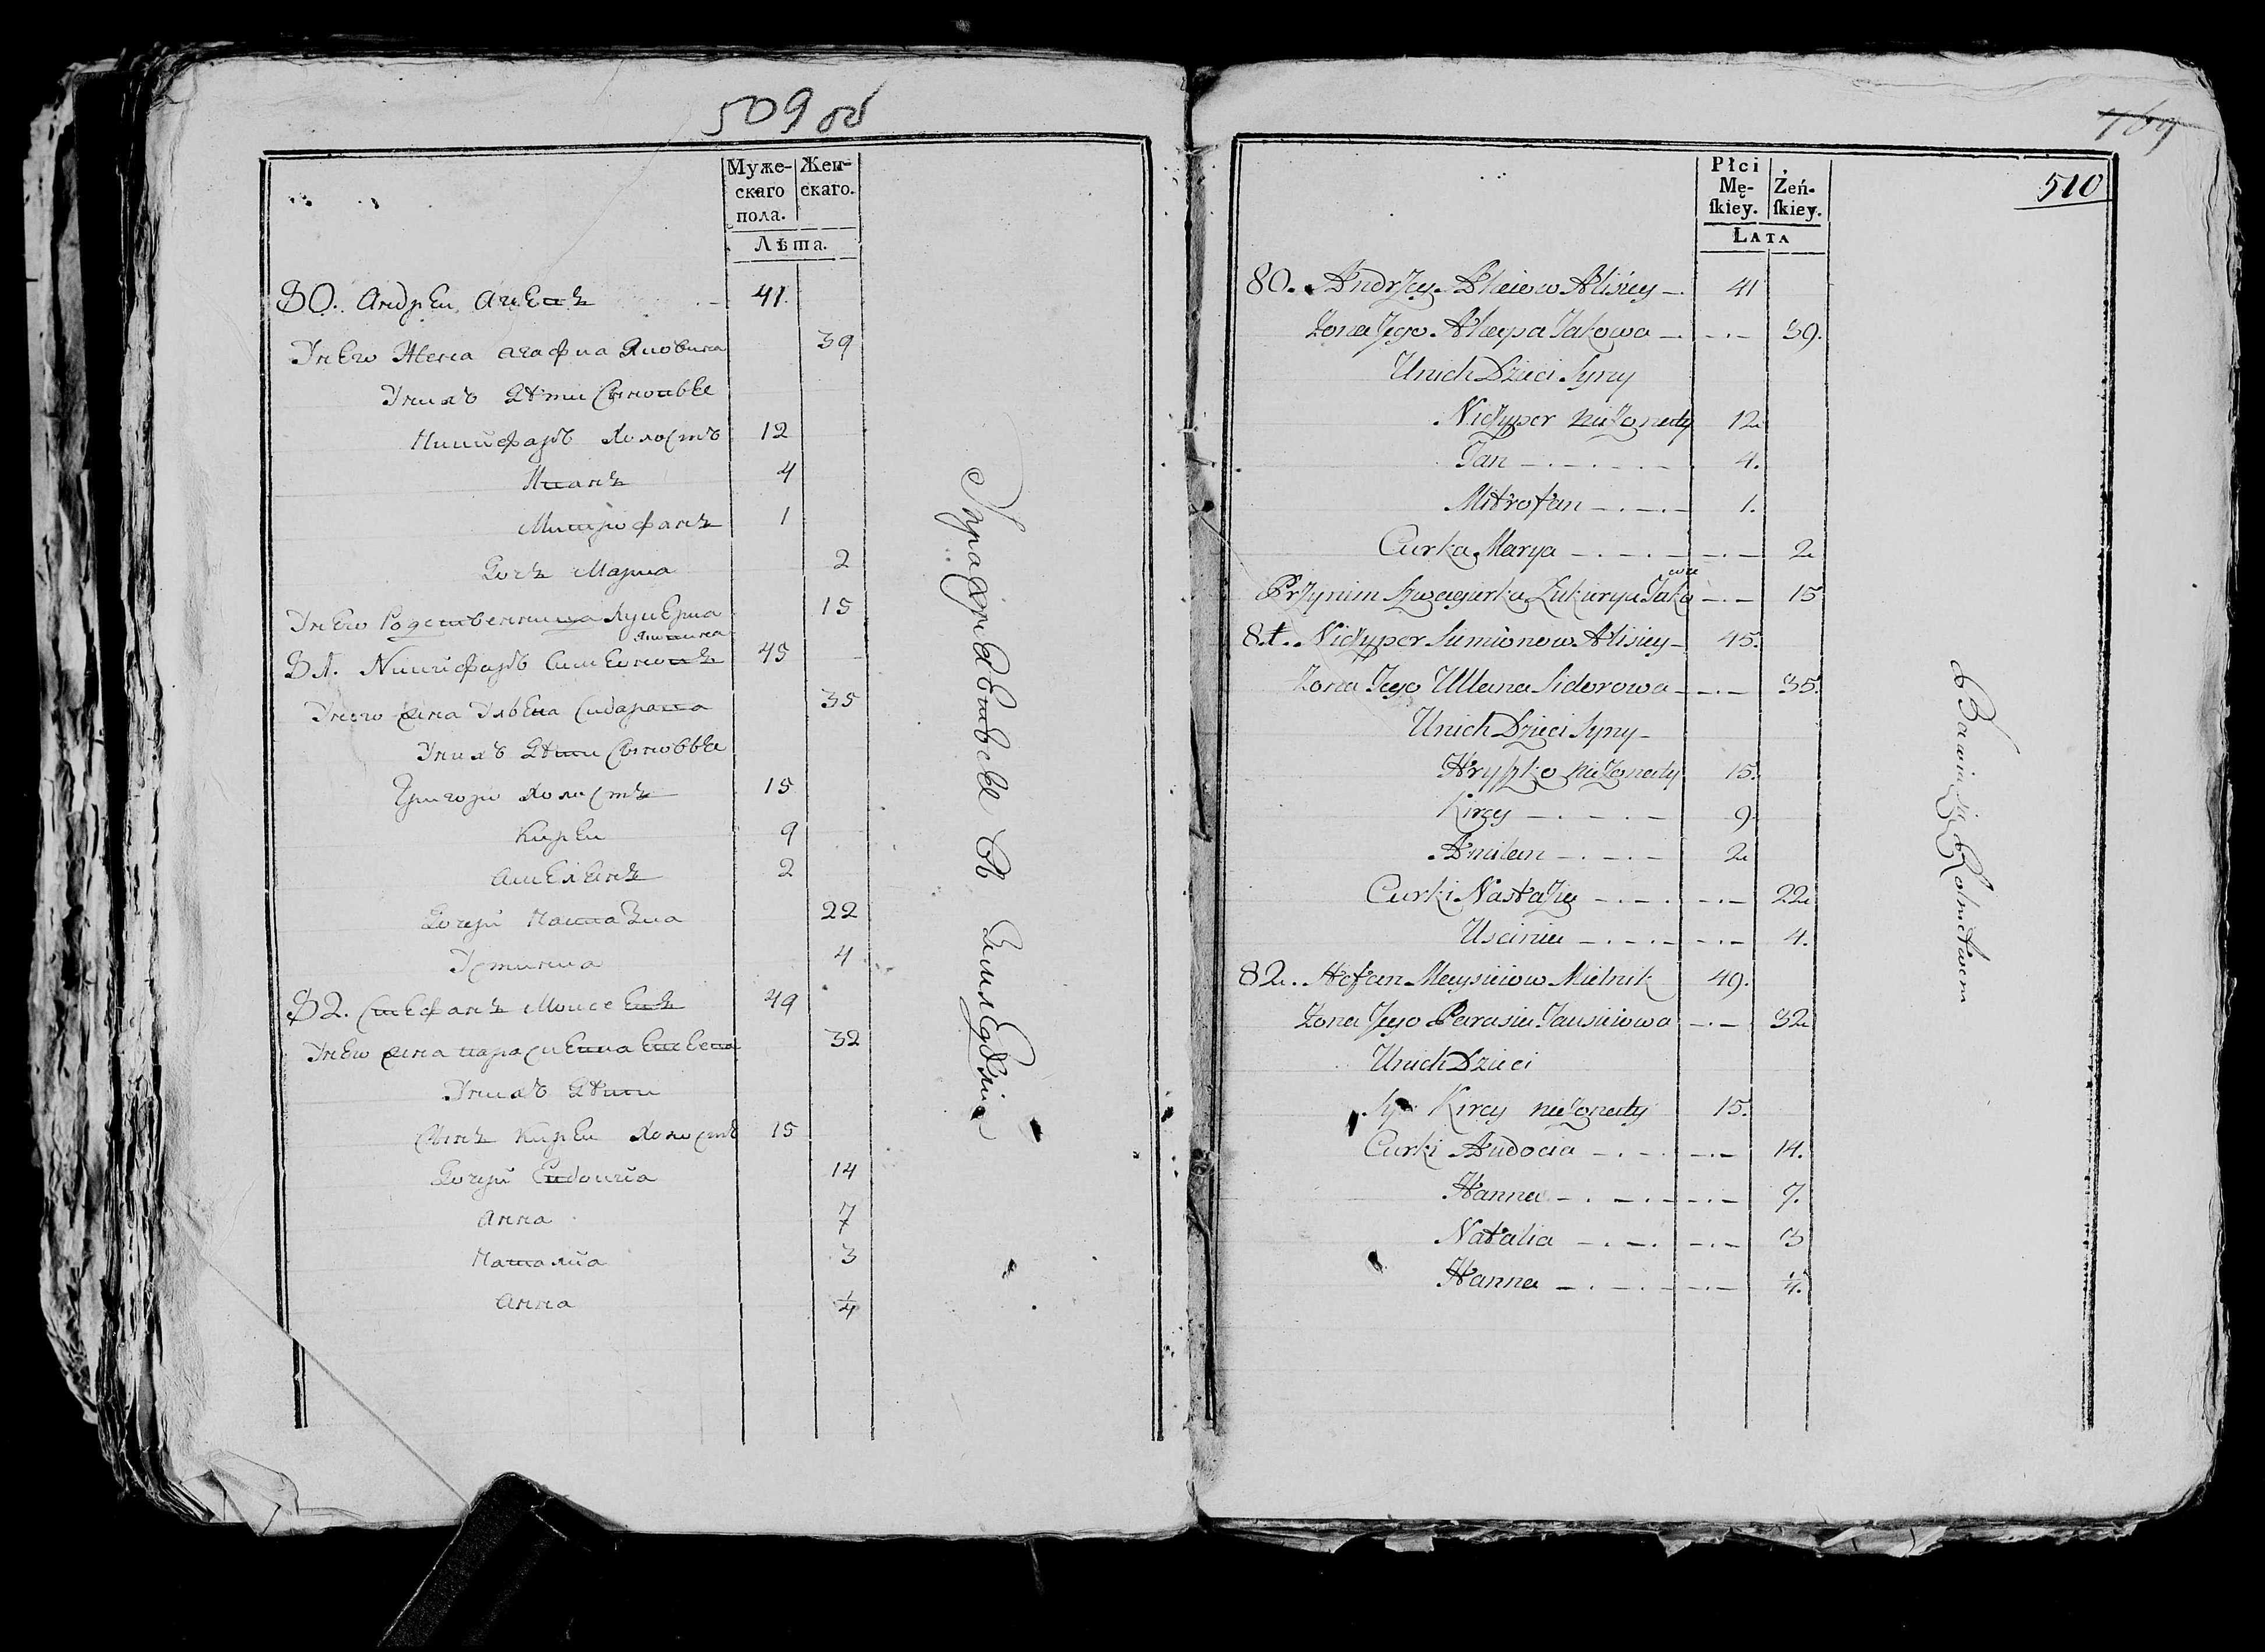 509 об
Муже-
скаго
пола.
Жен-
скаго.
Лѣта.
80. Андреи Агеевъ 41.
Унего Жена Агафиа Яковлева 39
Унихъ Дѣти Сыновье
Никифаръ холостъ 12
Иванъ 4
Митрофанъ 1
Дочь Мариа 2
Унего Родственница Лукериа 15
81. Никифаръ Симеоновъ 45
Унего Жена Ульена Сидарава 35
Унихъ Дѣти Сыновье
Григори холостъ 15
Киреи 9
Амелянъ 2
Дочери Настазиа 22
Устиниа 4
82. Стефанъ Моисеевъ 49
Унего Жена 32
Унихъ Дѣти
Сынъ Киреи холостъ 15
Дочери Евдокиа 14
Анна 7
Наталиа 3
Анна 1/4
Упражнаютьсе въ Земледелиа
769
510
Płci
Mę-
ſkiey.
Żeń-
ſkiey.
LATA
80. Andrzey Aheiow Alisiey 41
Zona Jego Ahapa Jakowa 39.
Unich Dzieci Syny
Nichypor nieżonaty 12
Jan 4.
Mitrofan 1.
Curka Marya 2
wa
Przynim Szwagierka Łukierya Jako 15
81. Nichypor Simionow Alisiey 45.
Zona Jego Ullana Sidorowa 35.
Unich Dzieci Syny
Hryszko nieżonaty 15.
Kirey 9
Amilan 2
Curki Nastazia 22
Uscinia 4.
82. Stefan Maysieiow Mielnik 49.
Zona Jego Parasia 32
Unich Dzieci
Syn Kirey nieżonaty 15.
Curki Audocia 14.
Hanna 7.
Natalia 3
Hanna 1/4.
Bawią się Rolnictwem